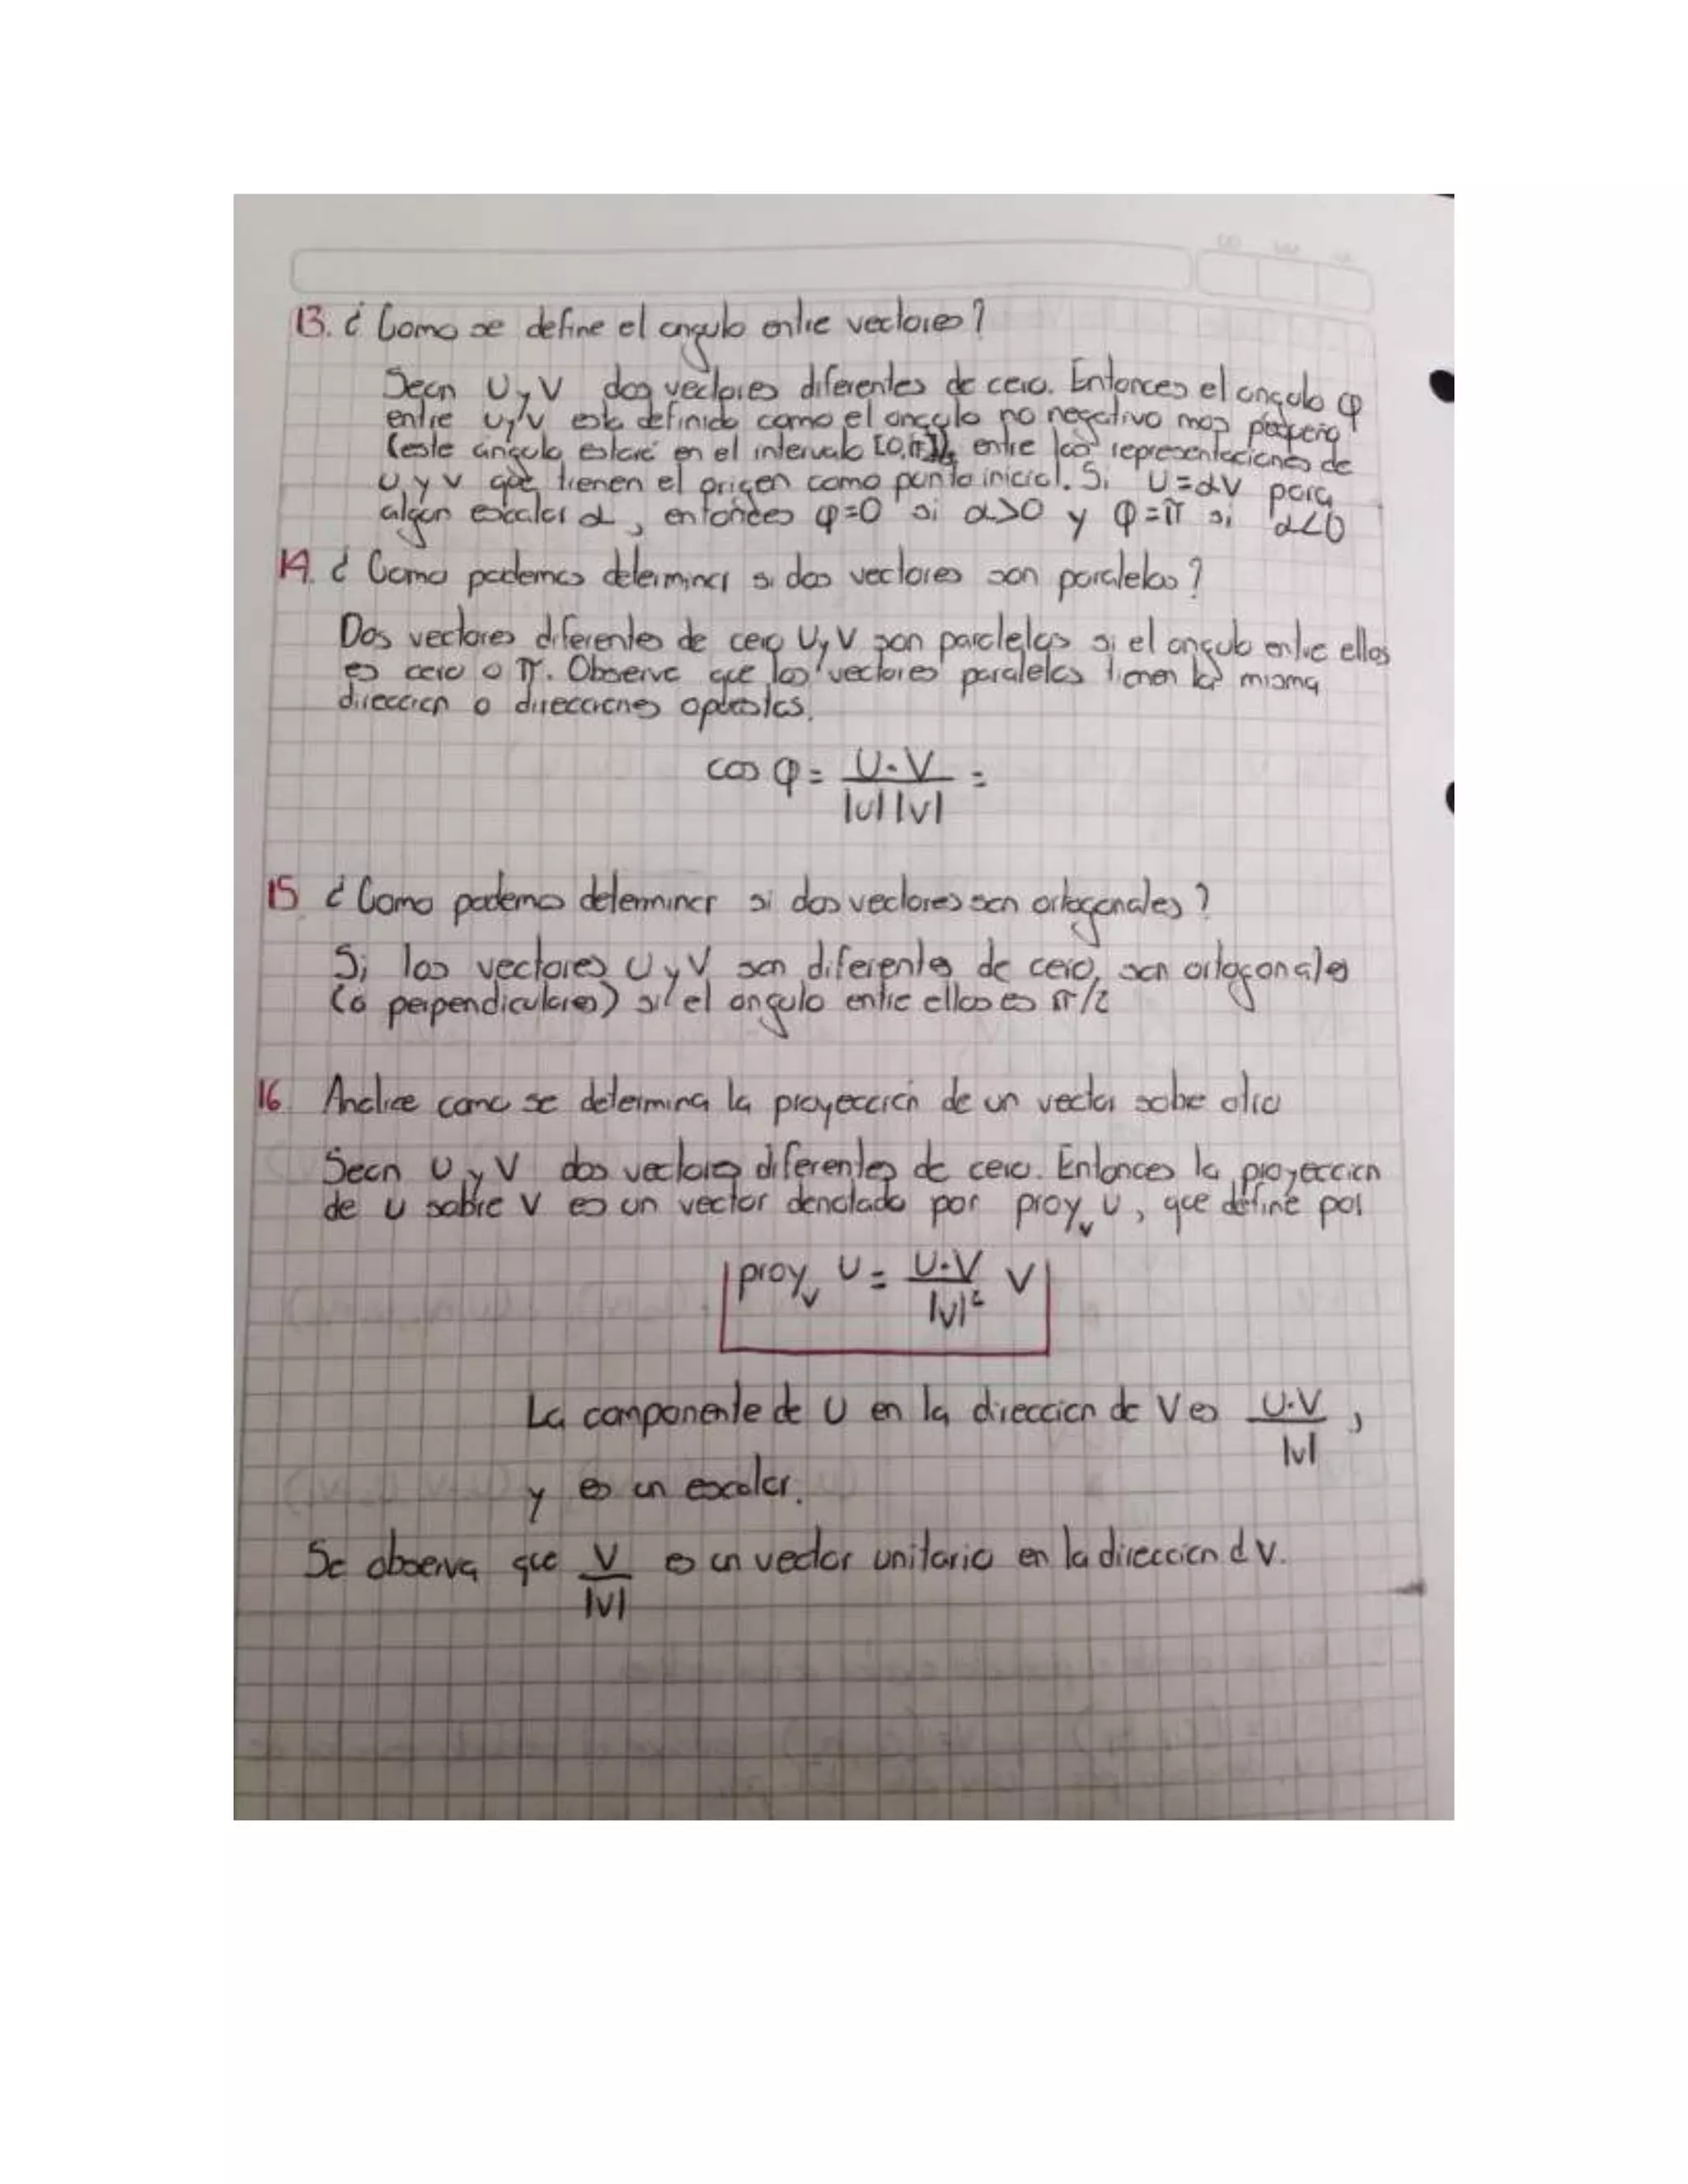 13. ¿Como se define el angulo entre vectores?
Sean U y V dos vectores diferentes de cero. Entonces el angulo φ
entre u y v esta definido como el angulo no negativo mas pequeño
(este angulo estará en el intervalo [0,π]), entre las representaciones de
u y v que tienen el origen como punto inicial. Si U=αV para
algun escalar α, entonces φ=0 si α>0 y φ=π si α<0
14. ¿Como podemos determinar si dos vectores son paralelos?
Dos vectores diferentes de cero U y V son paralelos si el angulo entre ellos
es cero o π. Observe que los vectores paralelos tienen la misma
direccion o direcciones opuestas.
cos φ = U·V / |u| |v| =
15 ¿Como podemos determinar si dos vectores son ortogonales?
Si los vectores U y V son diferentes de cero, son ortogonales
(o perpendiculares) si el angulo entre ellos es π/2
16. Analice como se determina la proyección de un vector sobre otro
Sean U y V dos vectores diferentes de cero. Entonces la proyeccion
de u sobre v es un vector denotado por proy_v U, que define por
proy_v U = U·V / |v|² V
La componente de U en la direccion de V es U·V / |v| ,
y es un escalar.
Se observa que V / |v| es un vector unitario en la direccion d V.